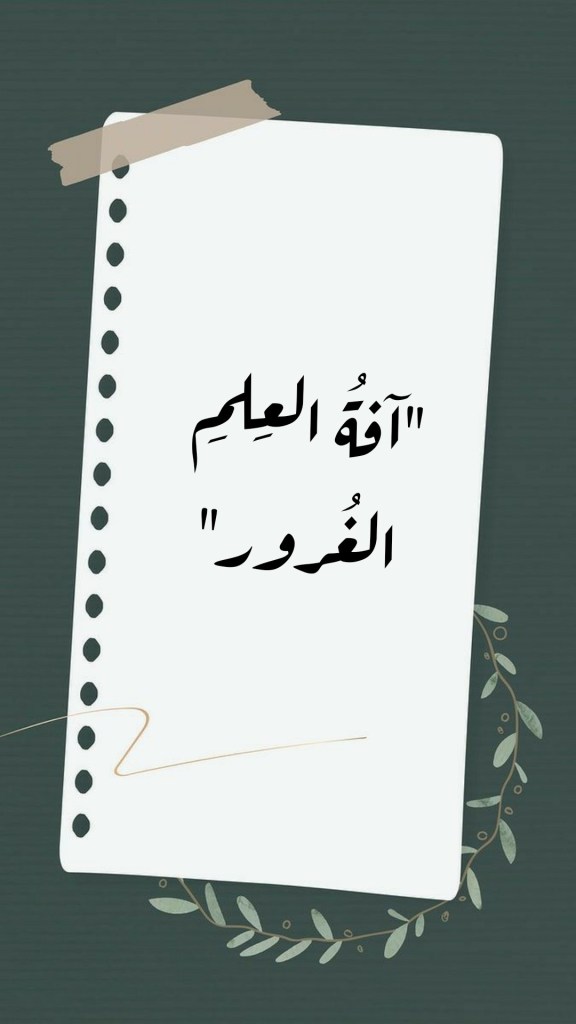 "آفةُ العِلمِ
الغُرور"